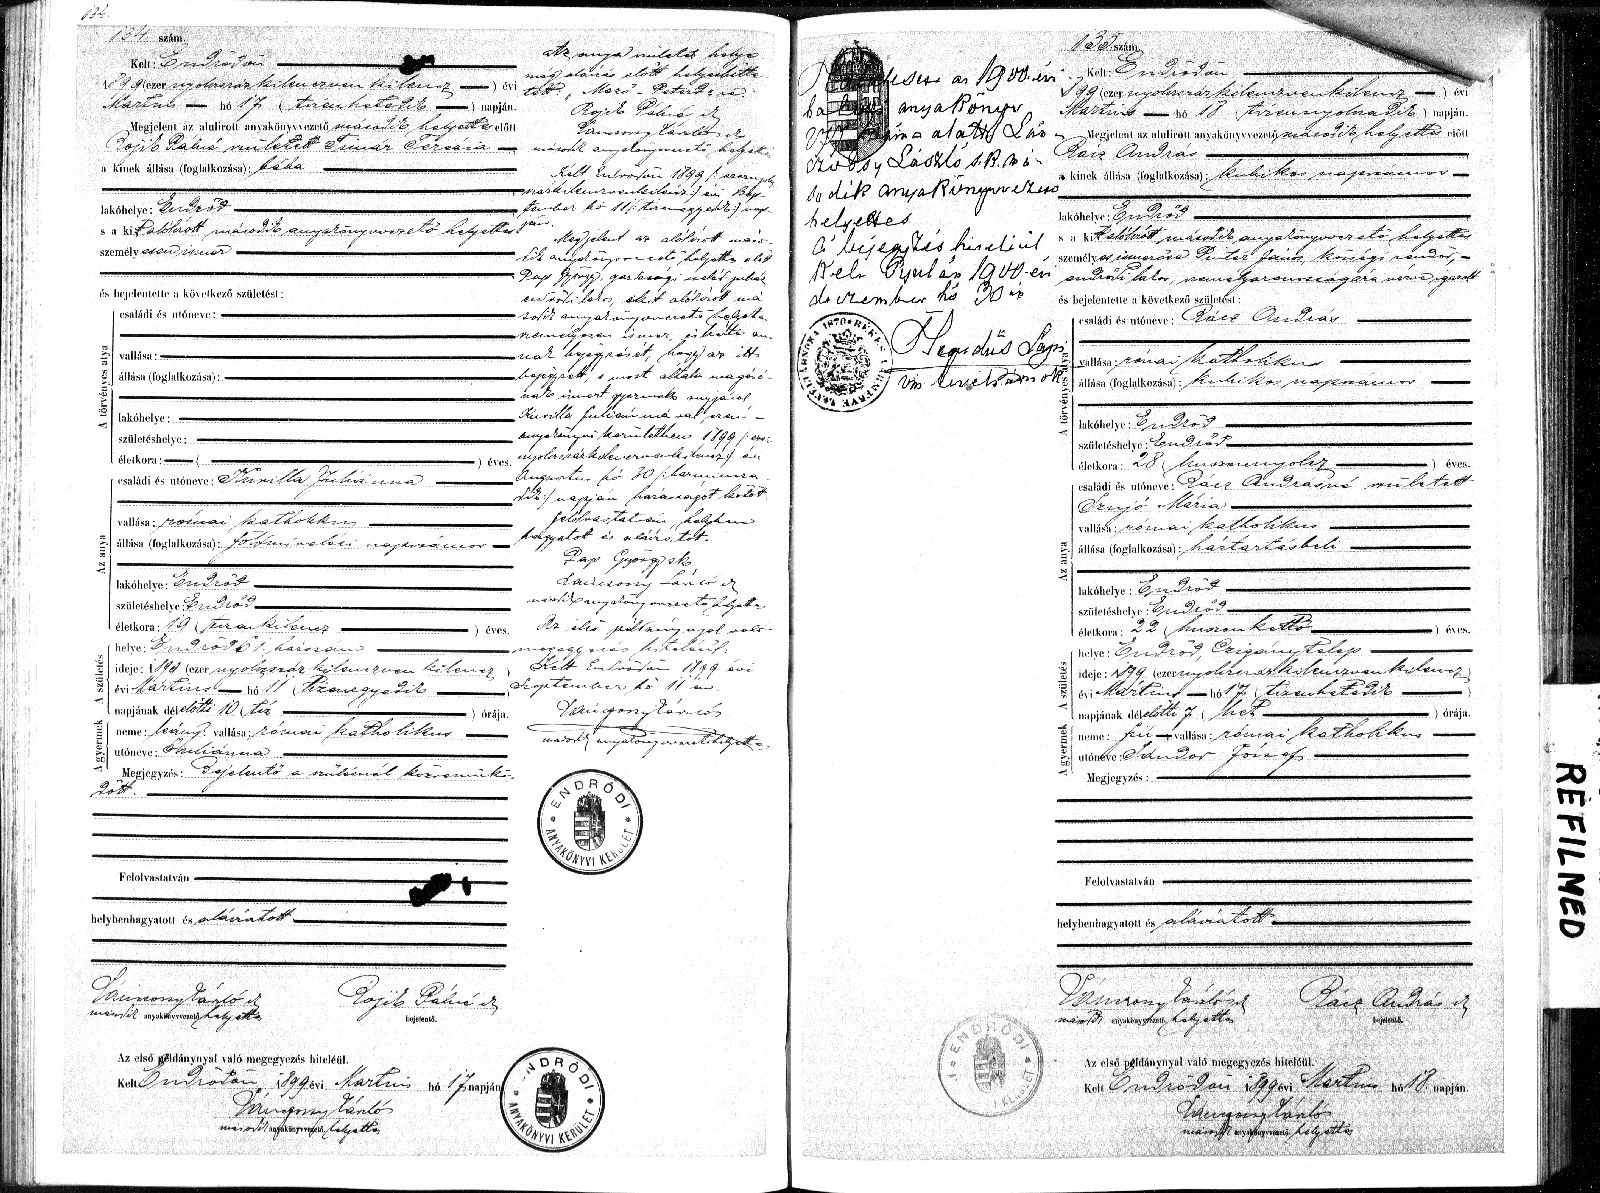 134.
134. szám.
Kelt: Endrődön
1899 (ezernyolcszázkilenczvenkilencz) évi
Martius hó 17 (tizenhetedik) napján.
Megjelent az alulirott anyakönyvvezető második helyettes előtt
Rojik Pálné született Timár Terézia
a kinek állása (foglalkozása): bába
lakóhelye: Endrőd
s a kit alólirott, második anyakönyvvezető helyettes
személyesen ismer
és bejelentette a következő születést:
A törvényes atya
családi és utóneve:
vallása:
állása (foglalkozása):
lakóhelye:
születéshelye:
életkora: ( ) éves.
Az anya
családi és utóneve: Kurilla Juliánna
vallása: római katholikus
állása (foglalkozása): földmívelési napszámos
lakóhelye: Endrőd
születéshelye: Endrőd
életkora: 19 (tizenkilencz) éves.
A születés
helye: Endrőd 61. házszám
ideje: 1899 (ezernyolcszázkilenczvenkilencz)
évi Martius hó 11 (tizenegyedik)
napjának délelőtti 10 (tíz) órája.
A gyermek
neme: leány. vallása: római katholikus
utóneve: Juliánna
Megjegyzés: Bejelentő a szülésnél közremükö-
dött.
Felolvastatván
helybenhagyatott és aláiratott
második anyakönyvvezető helyettes
Rojik Pálné
bejelentő.
Az első példánynyal való megegyezés hiteléül.
Kelt Endrődön, 1899 évi Martius hó 17 napján
második anyakönyvvezető helyettes
ENDRŐDI
ANYAKÖNYVI KERÜLET
Az anya születés helye
még aláirás előtt helyesbitte-
tett,
Rojik Pálné
második anyakönyvvezető helyettes
Kelt Endrődön 1899 /: ezernyolcz-
százkilenczvenkilencz:/ évi Szep-
tember hó 11 /: tizenegyedik:/ nap-
ján.
Megjelent az alólirott máso-
dik anyakönyvvezető helyettes előtt
Pap György, gazdasági
endrődi lakos, akit alólirott má-
sodik anyakönyvvezető helyettes
személyesen ismer, és kérte an-
nak bejegyzését, hogy az itt
bejegyzett, s most általa magáé-
nak ismert gyermek anyjával
Kurilla Juliánnával,
anyakönyvi kerületben 1899 /: ezer-
nyolcszázkilenczvenkilencz:/ évi
Augusztus hó 30 /: harmincza-
dik:/ napján házasságot kötött.
Felolvastatván, helyben
hagyatott és aláiratott.
Pap György sk
második anyakönyvvezető helyettes
Az első példánynyal való
megegyezés hiteléül.
Kelt Endrődön 1899 évi
Szeptember hó 11 én.
második anyakönyvvezető helyettes
ENDRŐDI
ANYAKÖNYVI KERÜLET
az 1900. évi
anyakönyv
alatt
László s.k. má-
sodik anyakönyvvezető
helyettes
A bejegyzés hiteléül
Kelt Gyulán 1900 évi
deczember hó 30 án
Hegedüs
135. szám.
Kelt: Endrődön
1899 (ezernyolcszázkilenczvenkilencz) évi
Martius hó 18 (tizennyolczadik) napján.
Megjelent az alulirott anyakönyvvezető második helyettes előtt
Rácz András
a kinek állása (foglalkozása): kubikos napszámos
lakóhelye: Endrőd
s a kit alólirott második anyakönyvvezető helyettes
endrődi lakos,
és bejelentette a következő születést:
A törvényes atya
családi és utóneve: Rácz András
vallása: római katholikus
állása (foglalkozása): kubikos napszámos
lakóhelye: Endrőd
születéshelye: Endrőd
életkora: 28 (huszonnyolcz) éves.
Az anya
családi és utóneve: Rácz Andrásné született
Szujó Mária
vallása: római katholikus
állása (foglalkozása): háztartásbeli
lakóhelye: Endrőd
születéshelye: Endrőd
életkora: 22 (huszonkettő) éves.
A születés
helye: Endrőd, Czigánytelep
ideje: 1899 (ezernyolcszázkilenczvenkilencz)
évi Martius hó 17 (tizenhetedik)
napjának délelőtti 7 (hét) órája.
A gyermek
neme: fiú vallása: római katholikus
utóneve: Sándor József
Megjegyzés:
Felolvastatván
helybenhagyatott és aláiratott
második anyakönyvvezető helyettes
Rácz András
bejelentő.
Az első példánynyal való megegyezés hiteléül.
Kelt Endrődön 1899 évi Martius hó 18. napján.
második anyakönyvvezető helyettes
ENDRŐDI
REFILMED